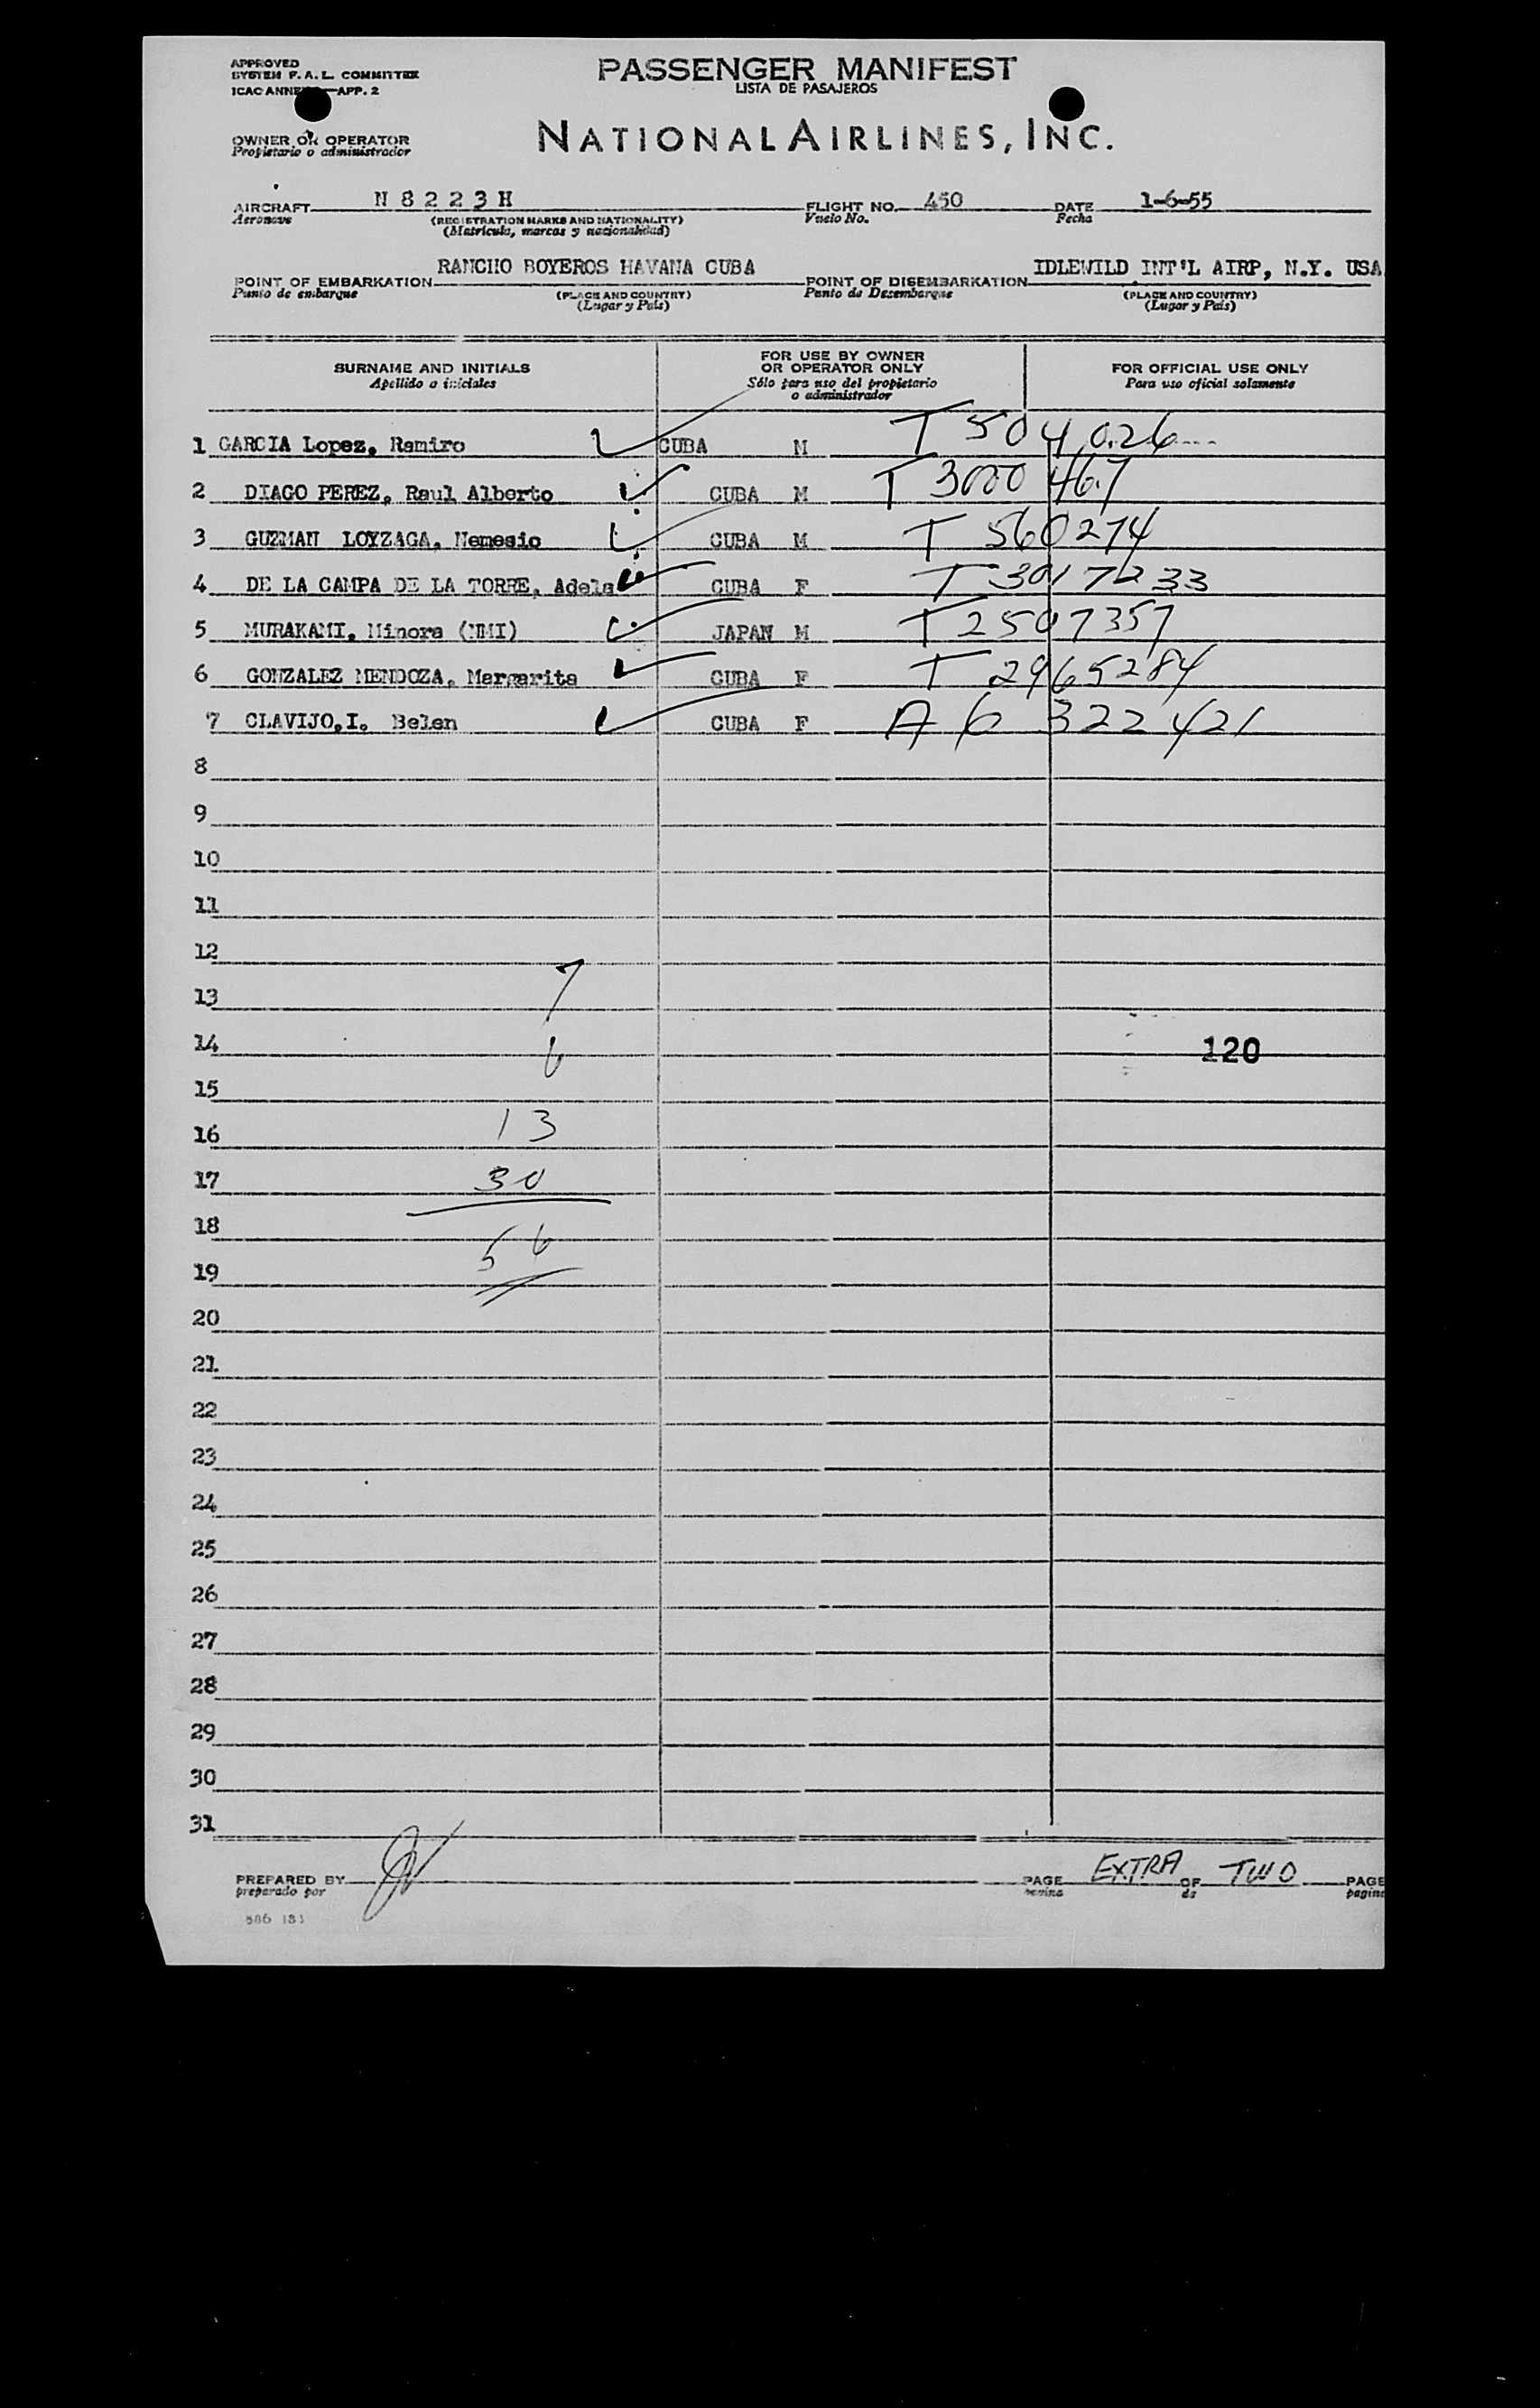 APPROVED
SYSTEM F.A.L. COMMITTEE
ICAO ANNEX —APP. 2
PASSENGER MANIFEST
LISTA DE PASAJEROS
OWNER OR OPERATOR
Propietario o administrador
NATIONAL AIRLINES, INC.
AIRCRAFT N 8 2 2 3 H FLIGHT NO. 450 DATE 1-6-55
Aeronave (REGISTRATION MARKS AND NATIONALITY) Vuelo No. Fecha
(Matricula, marcas y nacionalidad)
POINT OF EMBARKATION RANCHO BOYEROS HAVANA CUBA POINT OF DISEMBARKATION IDLEWILD INT'L AIRP, N.Y. USA
Punto de embarque (PLACE AND COUNTRY) Punto de Desembarque (PLACE AND COUNTRY)
(Lugar y País) (Lugar y País)
SURNAME AND INITIALS FOR USE BY OWNER OR OPERATOR ONLY FOR OFFICIAL USE ONLY
Apellido o iniciales Sólo para uso del propietario o administrador Para uso oficial solamente
1 GARCIA Lopez, Ramiro CUBA M T 504026
2 DIAGO PEREZ, Raul Alberto CUBA M T 3000467
3 GUZMAN LOYZAGA, Nemesio CUBA M T 560274
4 DE LA CAMPA DE LA TORRE, Adela CUBA F T 3017233
5 MURAKAMI, Minora (NMI) JAPAN M T 2507357
6 GONZALEZ MENDOZA, Margarita CUBA F T 2965284
7 CLAVIJO, I. Belen CUBA F A 6 322 421
8
9
10
11
12
7
13
14 6 120
15
16 13
17 30
18
56
19
20
21
22
23
24
25
26
27
28
29
30
31
PREPARED BY PAGE EXTRA OF TWO PAGE
preparado por pagina de pagina